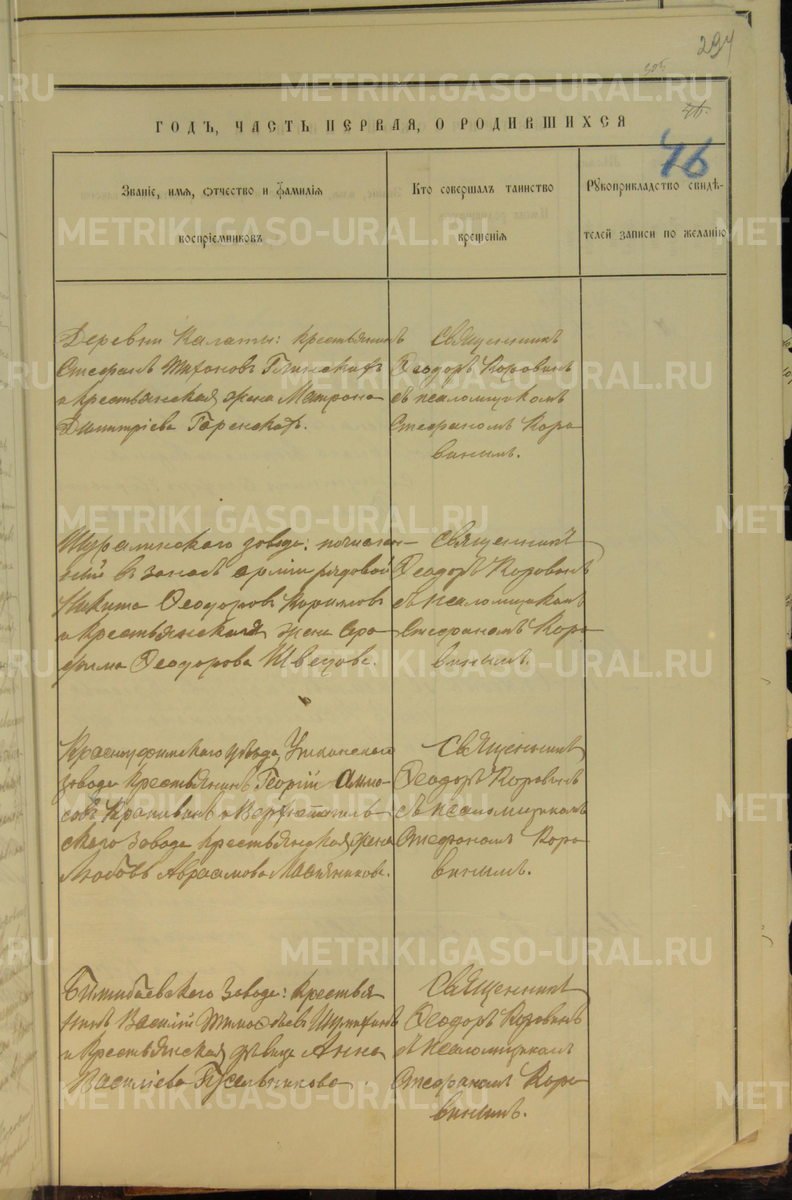 294
305
46
ГОДЪ, ЧАСТЬ ПЕРВАЯ, О РОДИВШИХСЯ
Званіе, имя, отчество и фамилія
воспріемниковъ
Кто совершалъ таинство
крещенія
Рукоприкладство свидѣ-
телей записи по желанію
Деревни Калаты: крестьянинъ
Стефанъ Тихоновъ Глинскихъ
и крестьянская жена Матрона
Димитріева Горенскихъ.
Священникъ
Ѳеодоръ Коровинъ
съ псаломщикомъ
Стефаномъ Коро
винымъ.
Шуралинскаго завода: почислен-
ный въ запасъ арміи рядовой
Никита Ѳеодоровъ Кориловъ
и крестьянская жена Сера
фима Ѳеодорова Швецова.
Священникъ
Ѳеодоръ Коровинъ
съ псаломщикомъ
Стефаномъ Коро
винымъ.
Красноуфимскаго уѣзда, Уткинскаго
завода крестьянинъ Георгій Аммо
совъ Крапивинъ и Верхнетагиль
скаго завода крестьянская жена
Любовь Авраамова Масленикова.
Священникъ
Ѳеодоръ Коровинъ
съ псаломщикомъ
Стефаномъ Коро
винымъ.
Билимбаевскаго завода: крестья
нинъ Василій Тимоѳеевъ
и крестьянская дѣвица Анна
Василіева Гусельникова.
Священникъ
Ѳеодоръ Коровинъ
съ псаломщикомъ
Стефаномъ Коро
винымъ.
METRIKI.GASO-URAL.RU